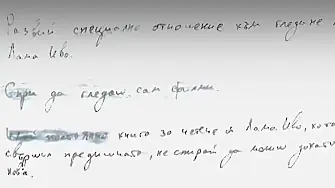 Развий специално отношение към гледане н
Лама Иво.
Спри да гледаш сам филми.
книга за четене и Лама Иво, кога
свършиш предишната, не спирай да можеш
нова.